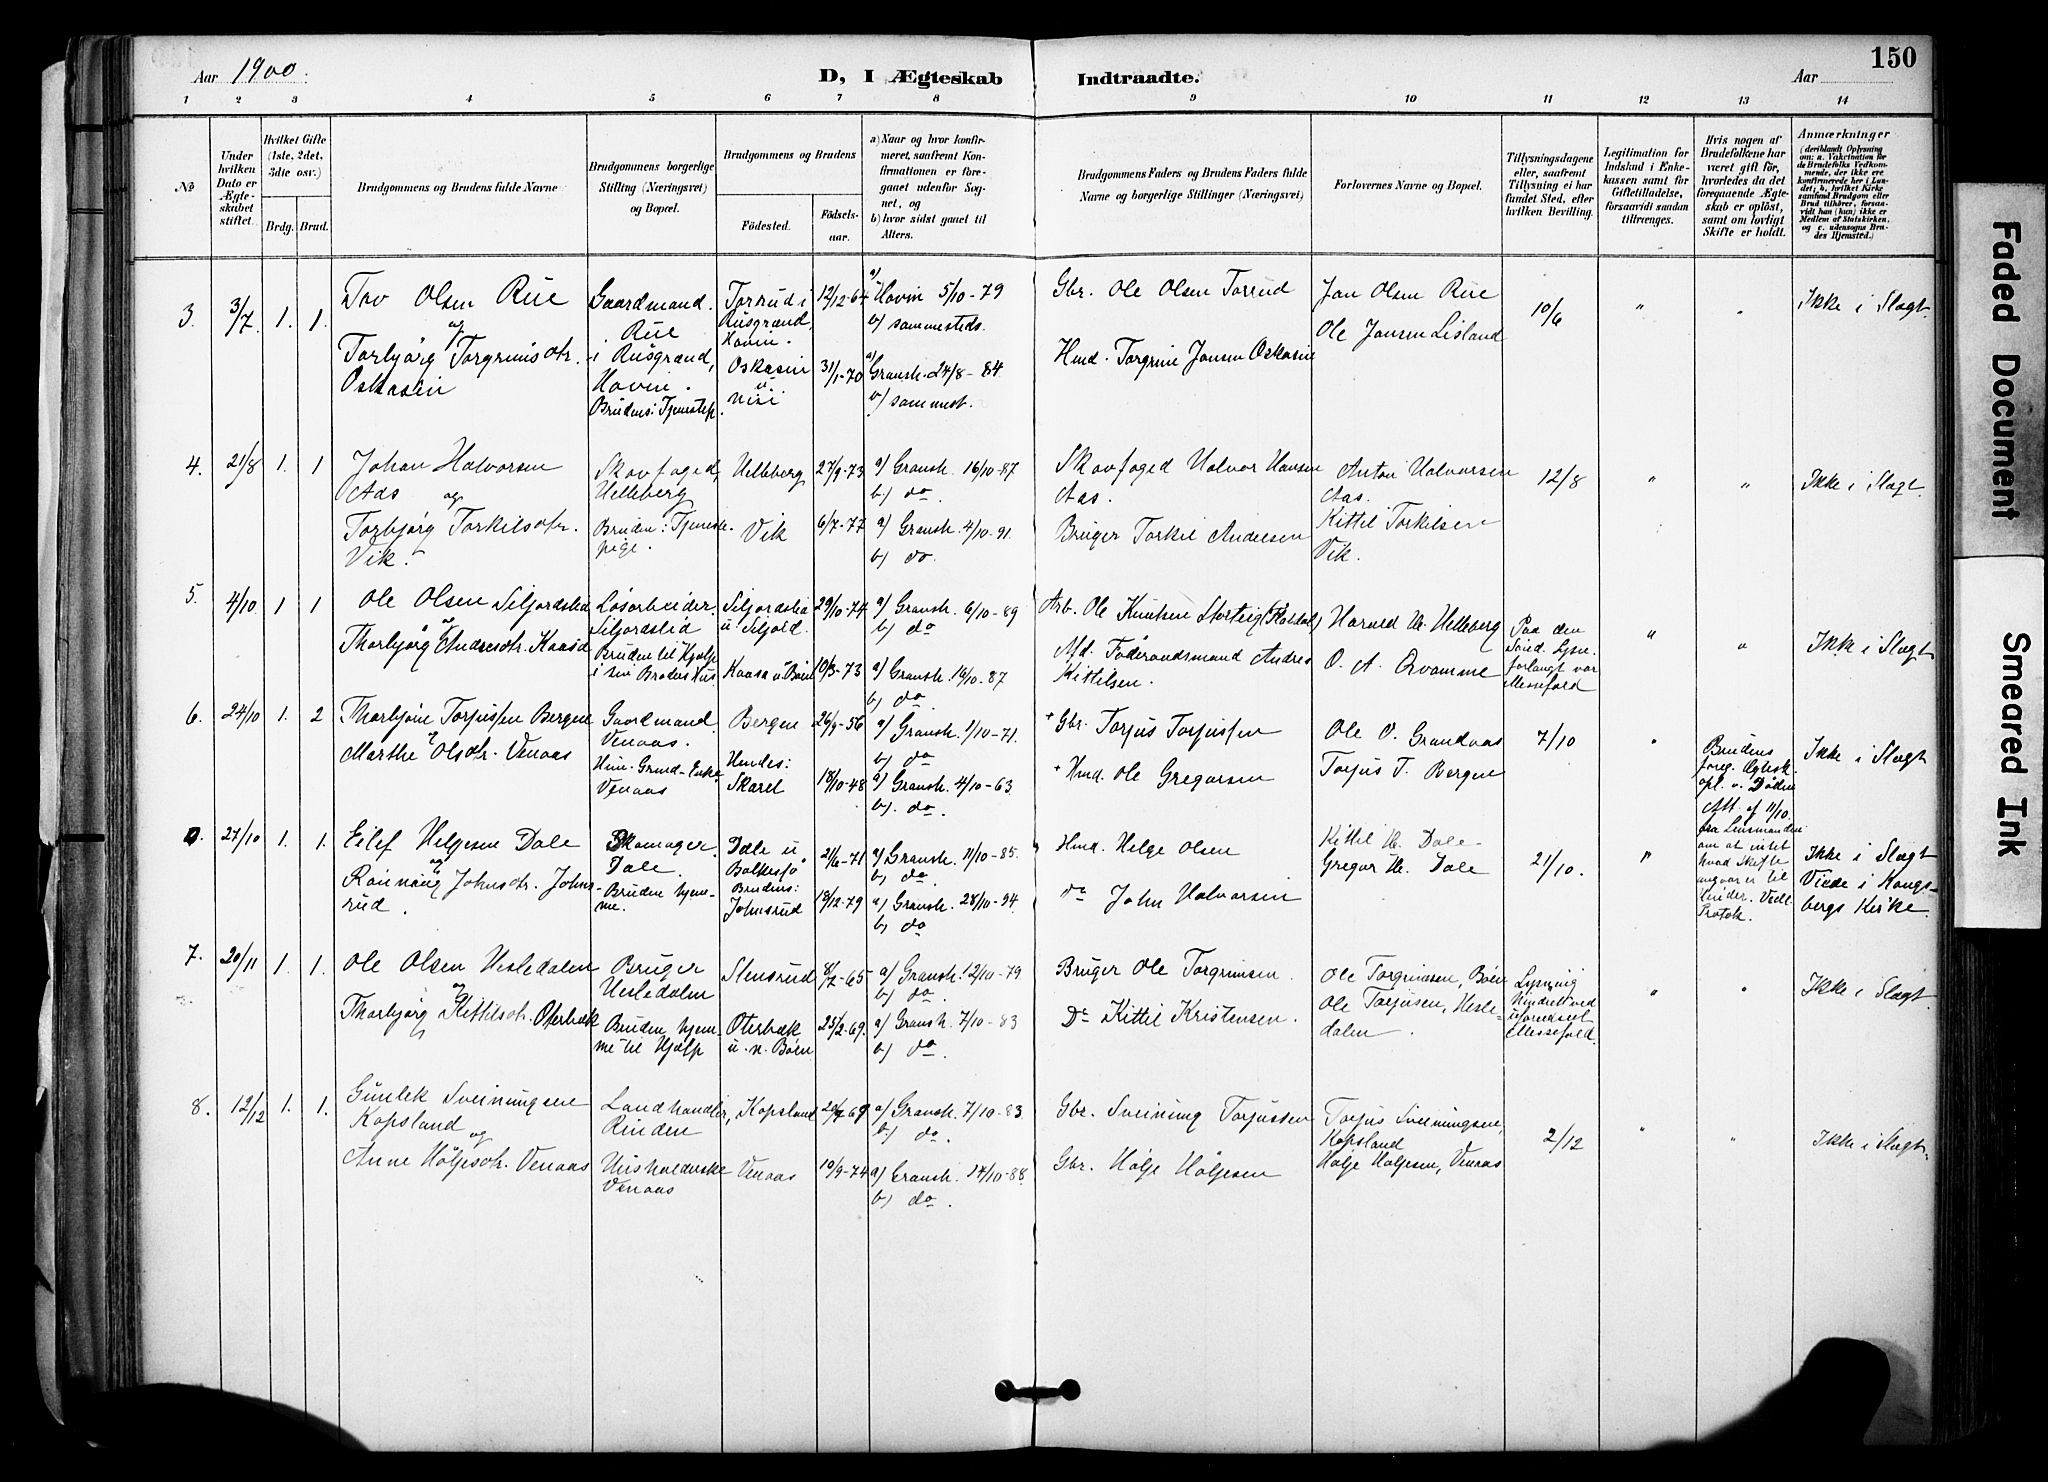 150
Aar 1900.
D, I Ægteskab Indtraadte.
Aar
1 2 3 4 5 6 7 8 9 10 11 12 13 14
No
Under hvilken Dato er Ægteskabet stiftet.
Hvilket Gifte (1ste, 2det, 3die osv.)
Brdg. Brud.
Brudgommens og Brudens fulde Navne
Brudgommens borgerlige Stilling (Næringsvei) og Bopæl.
Brudgommens og Brudens
Födested.
Födselsaar.
a) Naar og hvor konfirmeret, saafremt Konfirmationen er foregaaet udenför Sognet, og
b) hvor sidst gaaet til Alters.
Brudgommens Faders og Brudens Faders fulde Navne og borgerlige Stillinger (Næringsvei)
Forlovernes Navne og Bopæl.
Tillysningsdagene eller, saafremt Tillysning ei har fundet Sted, efter hvilken Bevilling.
Legitimation for Indskud i Enkekassen samt för Giftetilladelse, forsaavidt saadan tiltrænges.
Hvis nogen af Brudefolkene har været gift för, hvorledes da det foregaaende Ægteskab er oplöst, samt om lovligt Skifte er holdt.
Anmærkninger
3. 3/7 1. 1.
Tov Olsen Rue
og
Torbjörg Torgrimsdtr.
Oskasin
Gaardmand.
Rue
i Rusgrænd,
Hovin.
Brudens: Tjenestep.
Torrud i
Rusgrænd
Hovin.
Oskasin
12/12-64
31/1-70
a) Hovin 5/10-79
b) sammesteds.
a) Gransh. 24/8-84
b) sammest.
Gbr. Ole Olsen Torrud
Hmd. Torgrim Jonsen Oskasin
Jon Olsen Rue
Ole Jonsen Lisland
10/6
"
"
Ikke i Slægt.
4. 21/8 1. 1
Johan Halvorsen
Aas og
Torbjörg Torkilsdtr.
Vik.
Skovfoged,
Helleberg
Bruden: Tjenestepige.
Helleberg
Vik
27/9-73
6/7-77
a) Gransh. 16/10-87
b) do
a) Gransh. 4/10-91
b) do.
Skovfoged Halvor Hansen
Aas.
Bruger Torkil Andersen
Anton Halvorsen
Aas.
Kittil Torkilsen
Vik.
12/8
"
"
Ikke i Slægt.
5. 4/10. 1 1
Ole Olsen Siljordslid
Thorbjörg Andresdtr. Kaasa
Lösarbeider
Siljordslid
Bruden til Hjælp
i sin Broders Hus
Siljordslid
u. Siljord.
Kaasa u. Böen
29/10-74
10/3-73
a) Gransh. 6/10-89
b) do
a) Gransh. 16/10-87
b) do.
Arb. Ole Knutsen
Md. Föderaadsmand Andres
Kittelsen.
Harald H. Helleberg
O. A. Qvamme
Paa den
forlangt var
Messefald
"
"
Ikke i Slægt
6. 24/10 1. 2
Thorbjörn Torjussen Bergen
Marthe Olsdtr. Venaas
Gaardmand
Venaas.
Hun: Grund-Enke
Venaas
Bergen
Hendes:
Skaret
26/9-56
18/10-48
a) Gransh. 1/10-71.
b) do
a) Gransh. 4/10-63.
b). do.
+ Gbr. Torjus Torjussen
+ Hmd. Ole Gregarsen
Ole O. Grandaas
Torjus T. Bergen
7/10
"
Brudens
foreg. Ægtesk.
opl. v. Döden
Att. af 11/10.
fra Lensmanden
om at intet
hvad Skifte
angaar er til
Hinder. Vedl.
Protok.
Ikke i Slægt
27/10 1. 1.
Eilef Helgesen Dale
og
Ronnaug Johnsdtr. Johnsrud.
Skomager.
Dale.
Bruden hjemme.
Dale u
Bolkesjö
Brudens:
Johnsrud
21/6-71
19/12-79
a) Gransh. 11/10-85.
b) do.
a) Gransh. 28/10-94.
b) do
Hmd. Helge Olsen
do John Halvorsen
Kittil H. Dale
Gregar H. Dale
21/10.
"
Ikke i Slægt
Viede i Kongsbergs Kirke.
7. 20/11 1. 1.
Ole Olsen Hesledalen
og
Thorbjörg Kittilsdtr. Oterbæk
Bruger
Hesledalen
Bruden hjemme til Hjælp
Stensrud
Oterbæk
u. n. Böen
8/7-65
25/2-69.
a) Gransh. 12/10-79
b) do.
a) Gransh. 7/10-83
b) do.
Bruger Ole Torgrimsen.
Do Kittil Kristensen.
Ole Torgrimsen, Böen
Ole Torjusen, Hesledalen.
Lysning
hindret ved
uforudseet
Messefald.
"
"
Ikke i Slægt.
8. 12/12 1. 1.
Gunlek Sveinungsen
Kopsland og
Anne Höljesdtr. Venaas
Landhandler,
Rinden
Husholderske
Venaas
Kopsland
Venaas
19/9-74
a) Gransh. 7/10-83
b) do.
a) Gransh. 14/10-88.
b) do.
Gbr. Sveinung Torjussen
Gbr. Hölje Höljesen
Torjus Sveinungsen,
Kopsland
Hölje Höljesen, Venaas
2/12
"
"
Ikke i Slægt.
Faded Document
Smeared Ink